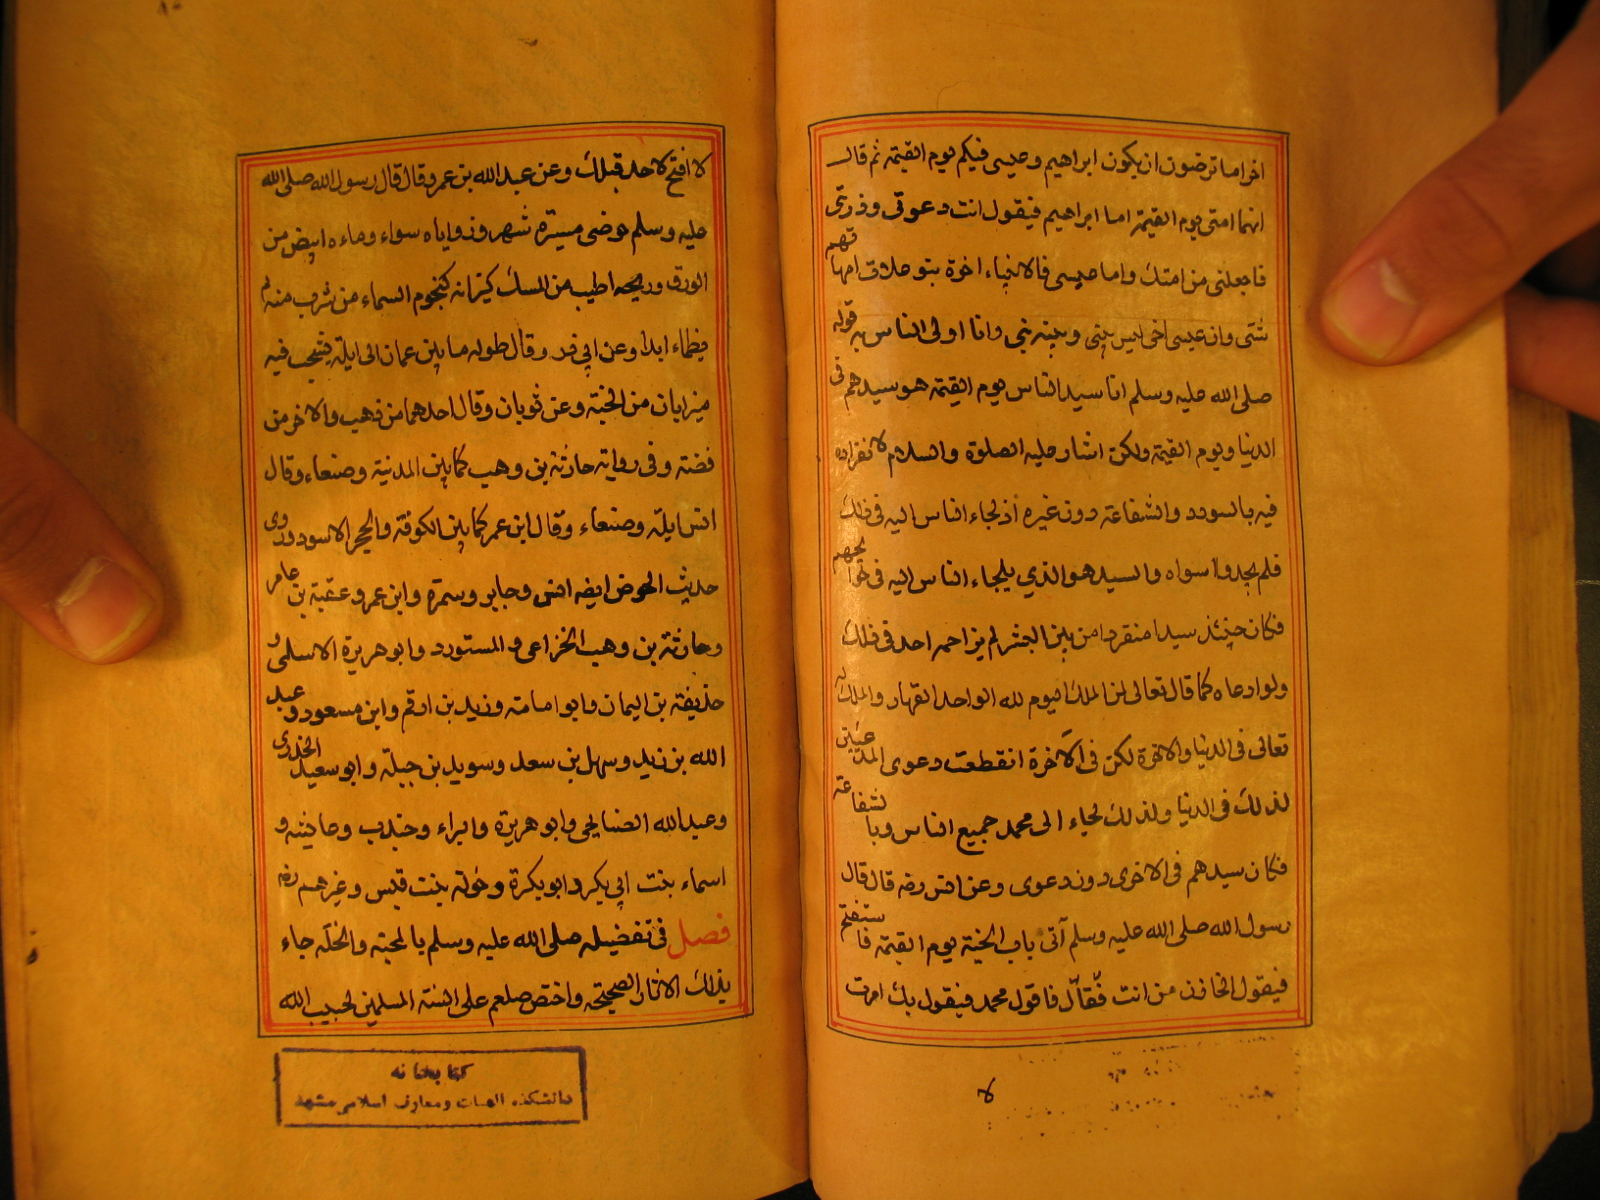 اخر اما ترضون ان يكون ابراهيم وعيسى فيكم يوم القيمة ثم قال
انهما امتى يوم القيمة اما ابراهيم فيقول انت دعوتى وذريتى
فاجعلنى من امتك واما عيسى فالانبياء اخوة بنو علات امهاتهم
شتى وان عيسى اخى ليس بينى وبينه نبى وانا اولى الناس به قوله
صلى الله عليه وسلم انا سيد الناس يوم القيمة هو سيدهم فى
الدنيا ويوم القيمة ولكن اشار عليه الصلوة والسلام لانفراده
فيه بالسودد والشفاعة دون غيره اذ لجاء الناس اليه فى ذلك
فلم يجدوا سواه والسيد هو الذي يلجاء الناس اليه فى حوايجهم
فكان حينئذ سيدا منفردا من بين البشر لم يزاحمه احد فى ذلك
ولا ادعاه كما قال تعالى لمن الملك اليوم لله الواحد القهار والملك له
تعالى فى الدنيا والاخرة لكن فى الآخرة انقطعت دعوى المدعيين
لذلك فى الدنيا ولذلك لجاء الى محمد جميع الناس وبالشفاعة
فكان سيدهم فى الاخرى دون دعوى وعن انس رضه قال قال
رسول الله صلى الله عليه وسلم آتى باب الجنة يوم القيمة فاستفتح
فيقول الخازن من انت فقال فاقول محمد فيقول بك امرت
لا
لا افتح لاحد قبلك وعن عبد الله بن عمرو قال قال رسول الله صلى الله
عليه وسلم حوضى مسيرة شهر وزواياه سواء وماءه ابيض من
الورق وريحه اطيب من المسك كيزانه كنجوم السماء من شرب منه لم
يظماء ابدا وعن ابي ذر وقال طوله ما بين عمان الى ايلة يشخب فيه
ميزابان من الجنة وعن ثوبان وقال احدهما من ذهب والاخر من
فضة وفى رواية حارثة بن وهب كما بين المدنية وصنعاء وقال
انس ايلة وصنعاء وقال ابن عمر كما بين الكوفة والحجر الاسود وروى
حديث الحوض ايضه انس وجابر وسمرة وابن عمر وعقبة بن عامر
وحارثة بن وهب الخزاعى والمستورد وابو هريرة الاسلمى و
حذيفة بن اليمان وابو امامة وزيد بن ارقم وابن مسعود وعبد
الله بن زيد وسهل بن سعد وسويد بن جبلة وابو سعيد الخدرى
وعبد الله الصنابحى وابو هريرة والبراء وجندب وعايشه و
اسماء بنت ابي بكر وابو بكرة وخولة بنت قيس وغيرهم رضه
فصل فى تفضيله صلى الله عليه وسلم بالمحبة والخلة جاء
بذلك الاثار الصحيحة واختص صلعم على السنة المسلمين لحبيب الله
كتابخانه
دانشكده الهيات ومعارف اسلامى مشهد